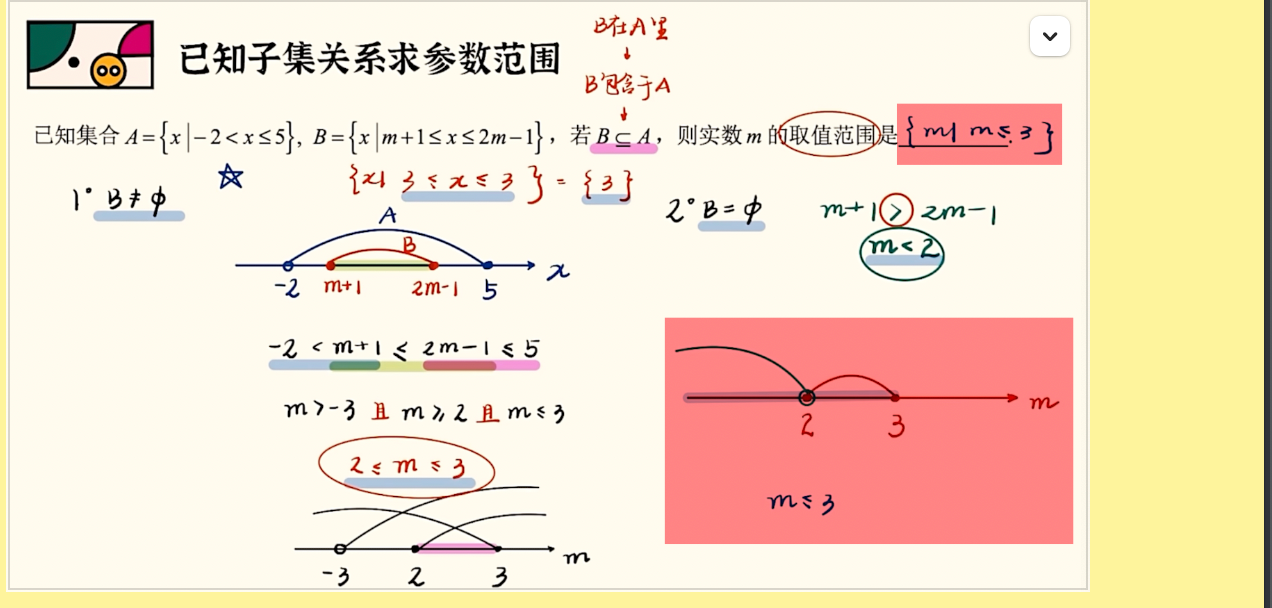 B在A里
↓
已知子集关系求参数范围
B包含于A
↓
已知集合 A={x|-2<x≤5}, B={x|m+1≤x≤2m-1}，若 B⊆A，则实数 m 的取值范围是 {m| m≤3}.
{x| 3≤x≤3} = {3}
1° B≠ϕ ☆
2° B=ϕ m+1>2m-1
m<2
A
B
-2 m+1 2m-1 5 x
-2<m+1≤2m-1≤5
m>-3 且 m≥2 且 m≤3
2≤m≤3
-3 2 3 m
2 3 m
m≤3